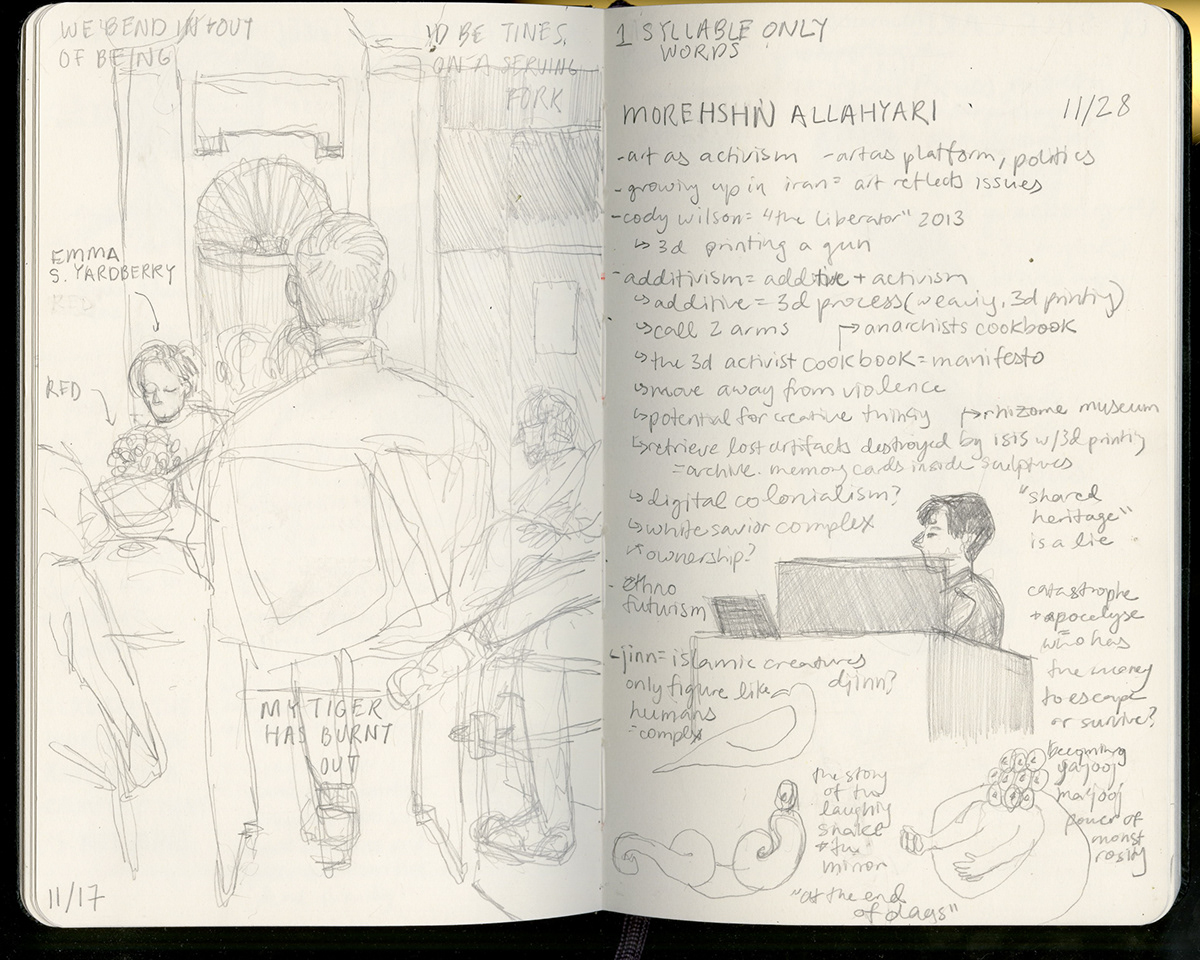 WE BEND IN + OUT
OF BEING
I'D BE TINES,
ON A SERVING
FORK
EMMA
S. YARDBERRY
RED
RED
MY TIGER
HAS BURNT
OUT
11/17
1 SYLLABLE ONLY
WORDS
MOREHSHIN ALLAHYARI
11/28
- art as activism - art as platform, politics
- growing up in iran = art reflects issues
- cody wilson = "the liberator" 2013
↳ 3d printing a gun
- additivism = additive + activism
↳ additive = 3d process (weaving, 3d printing)
↳ call 2 arms ↱ anarchists cookbook
↳ the 3d activist cookbook = manifesto
↳ move away from violence
↳ potential for creative things ↱ rhizome museum
↳ retrieve lost artifacts destroyed by ISIS w/3d printing
= archive. memory cards inside sculptures
↳ digital colonialism?
↳ white savior complex
ownership?
"shared
heritage"
is a lie
- ethno
futurism
catastrophe
+ apocalyse
who has
the money
to escape
or survive?
- jinn = islamic creatures
djinn?
only figure like
humans
= complex
the story
of the
laughing
snake
+ the
mirror
becoming
yajooj
majooj
power of
monst
rosity
"at the end
of days"